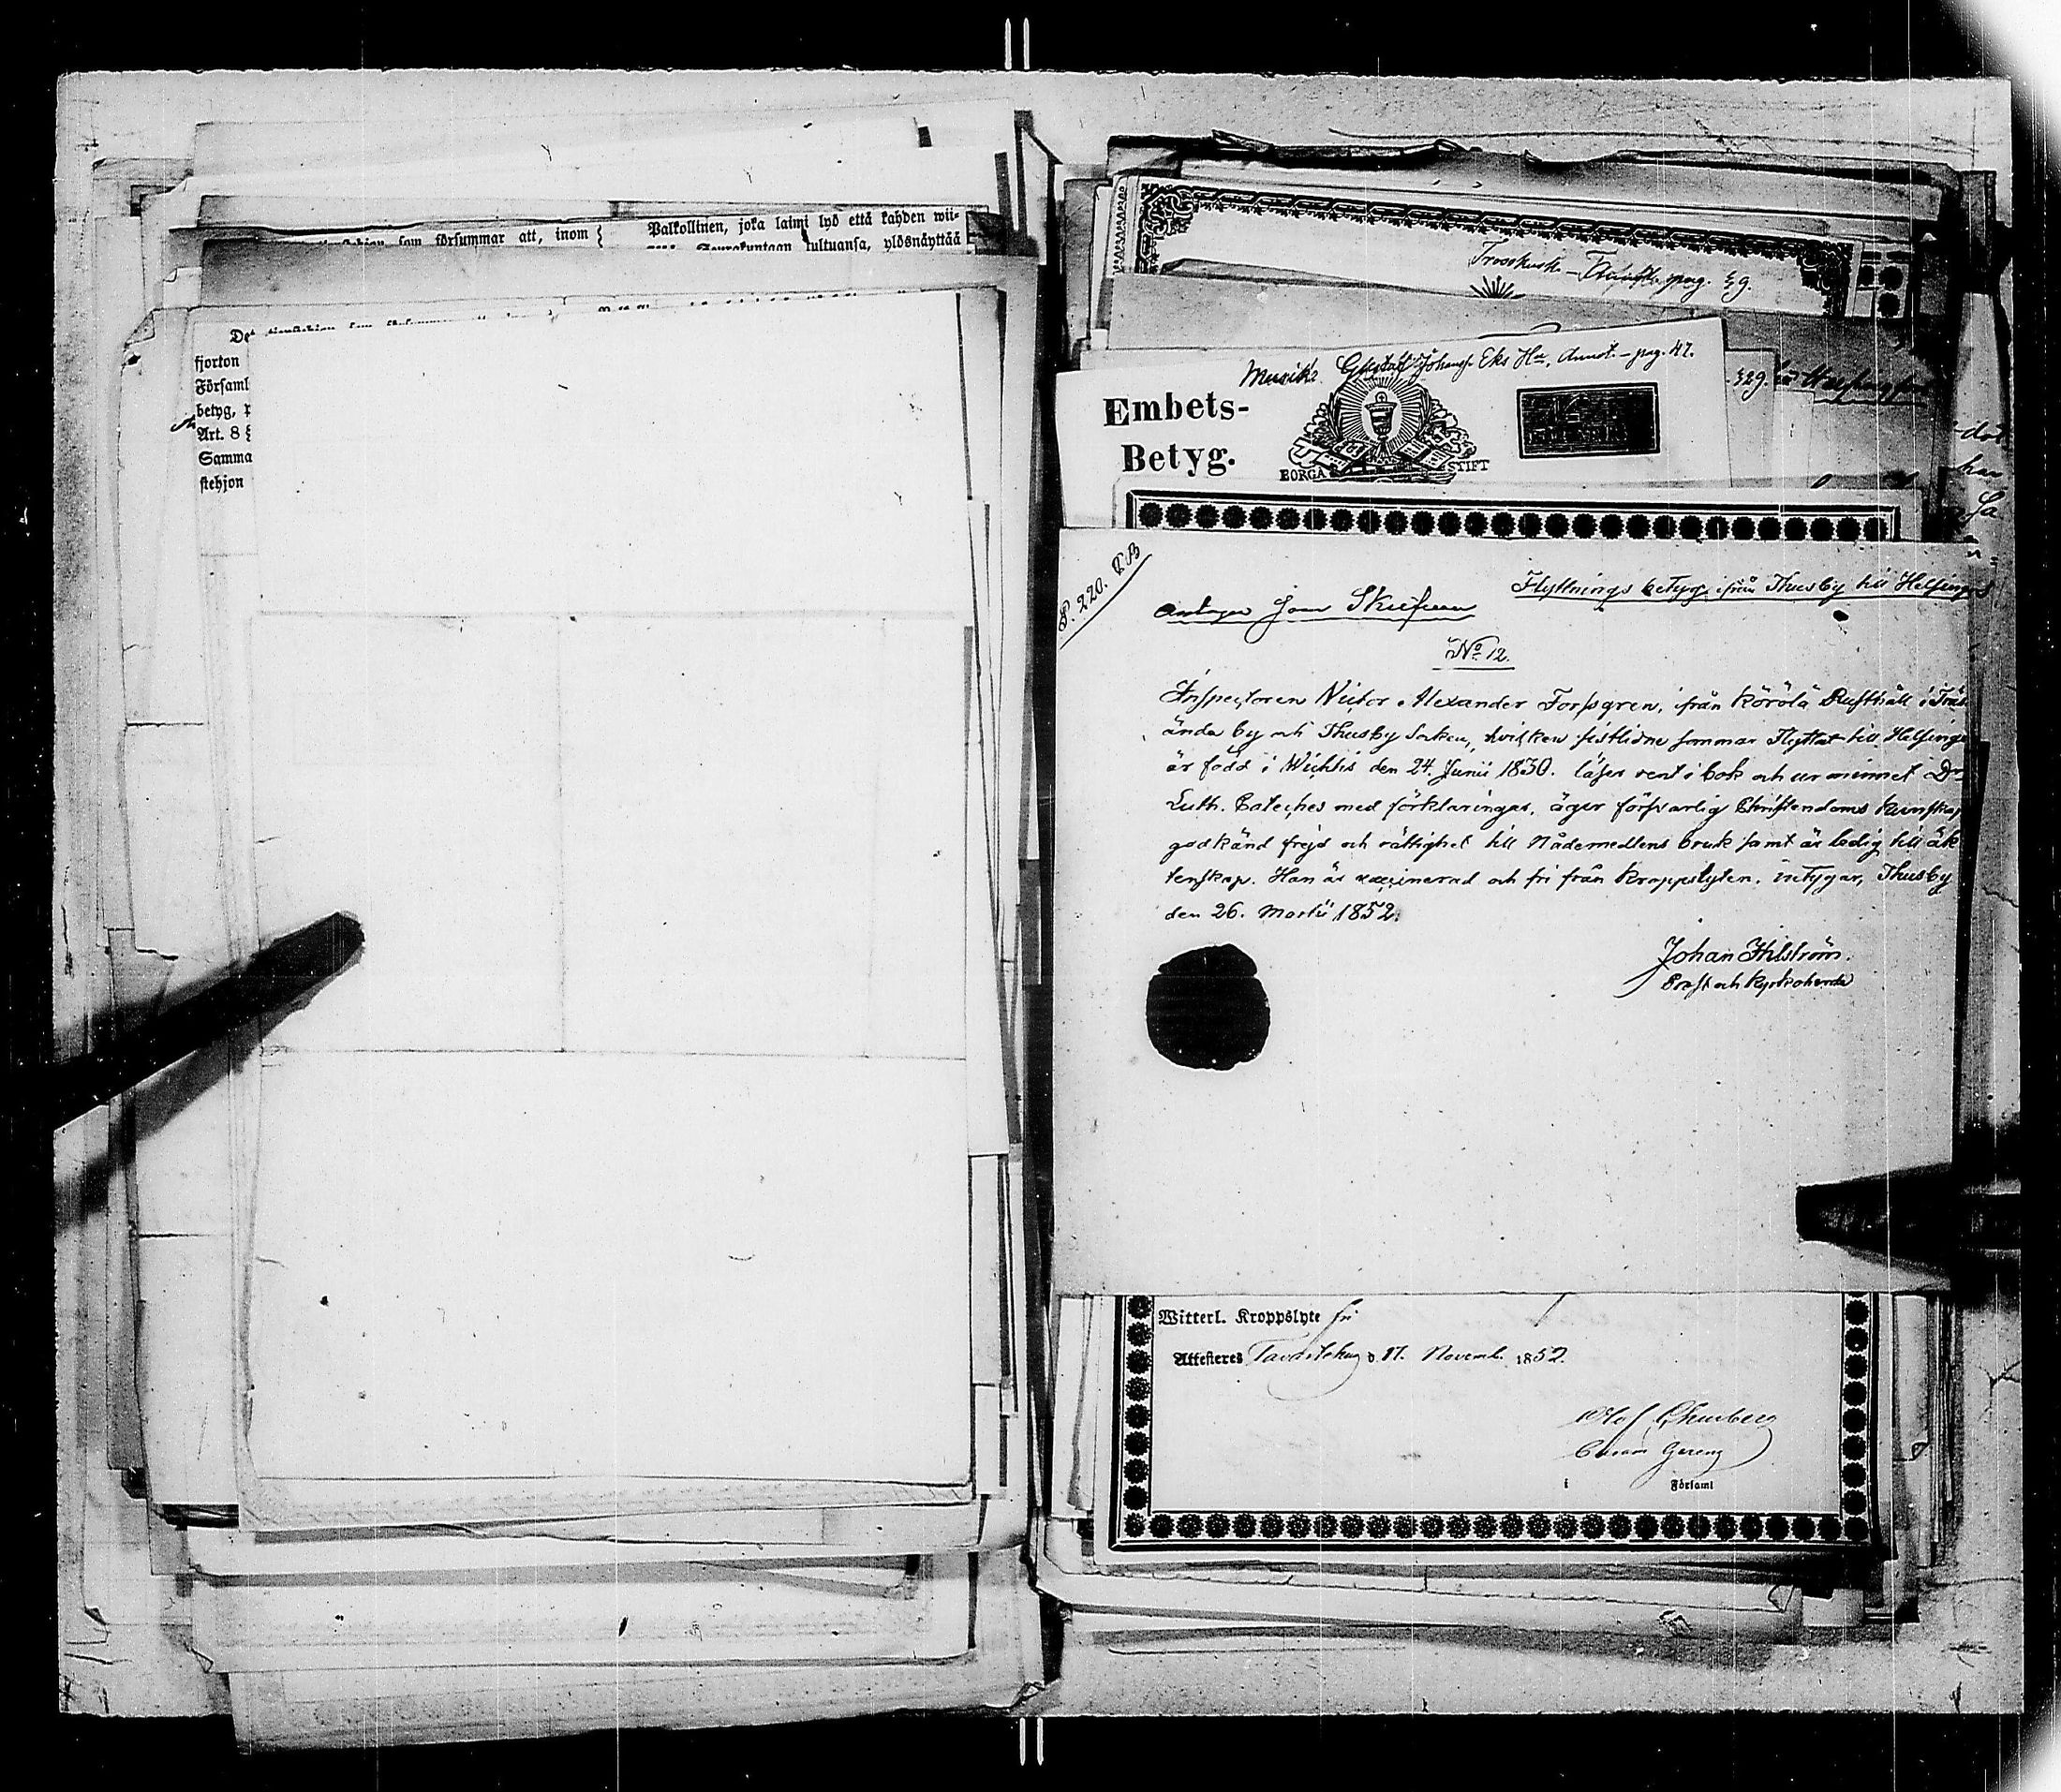 som försummar att, inom
Palkollinen, joka laimi lyö että kahden wii-
tultuansa, ylösnäyttää
fjorton
Församl
betyg,
Art. 8
Samma
stehjon
pag.
Musik. Gustaf Johanss. Eks pag. 47.
Embets-
Betyg.
BORGÅ STIFT
S. 220.
Flyttnings betyg ifrån Thusby till Helsingfors
No 12.
Inspectoren Victor Alexander Forssgren, ifrån Körölä Rusthåll i Träs
ända by och Thusby Socken, hvilken sistlidne sommar flyttat till Helsingf
är född i Wichtis den 24 Junii 1830. läser rent i bok och ur minnet Drs
Luth. Cateches med förklaringar, äger försvarlig Christendoms kunskap
godkänd frejd och rättighet till Nådemedlens bruk samt är ledig till äk
tenskap. Han är vaccinerad och fri från kroppslyten, intygar, Thusby
den 26. Martii 1852.
Johan Hilström.
Prost och Kyrkoherde
Witterl. Kroppslyte fri
Attesteras Tavastehus d. 17. Novemb. 1852.
i Församl